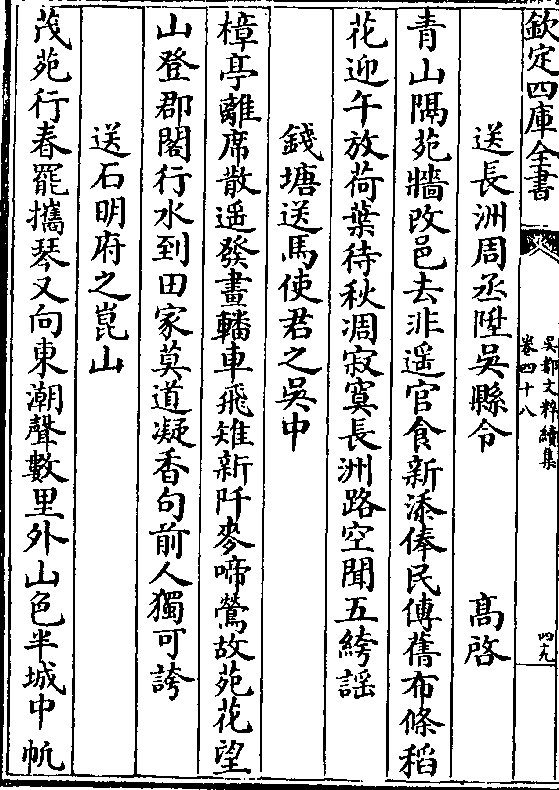 欽定四庫全書
吳都文粹續集
卷四十八
四九
送長洲周丞陞吳縣令
高啓
青山隔苑牆改邑去非遥官食新添俸民傳舊布條稻
花迎午放荷葉待秋凋寂寞長洲路空聞五絝謡
錢塘送馬使君之吳中
樟亭離席散遥發畫轓車飛雉新阡麥啼鶯故苑花望
山登郡閣行水到田家莫道凝香句前人獨可誇
送石明府之崑山
茂苑行春罷攜琴又向東潮聲數里外山色半城中帆